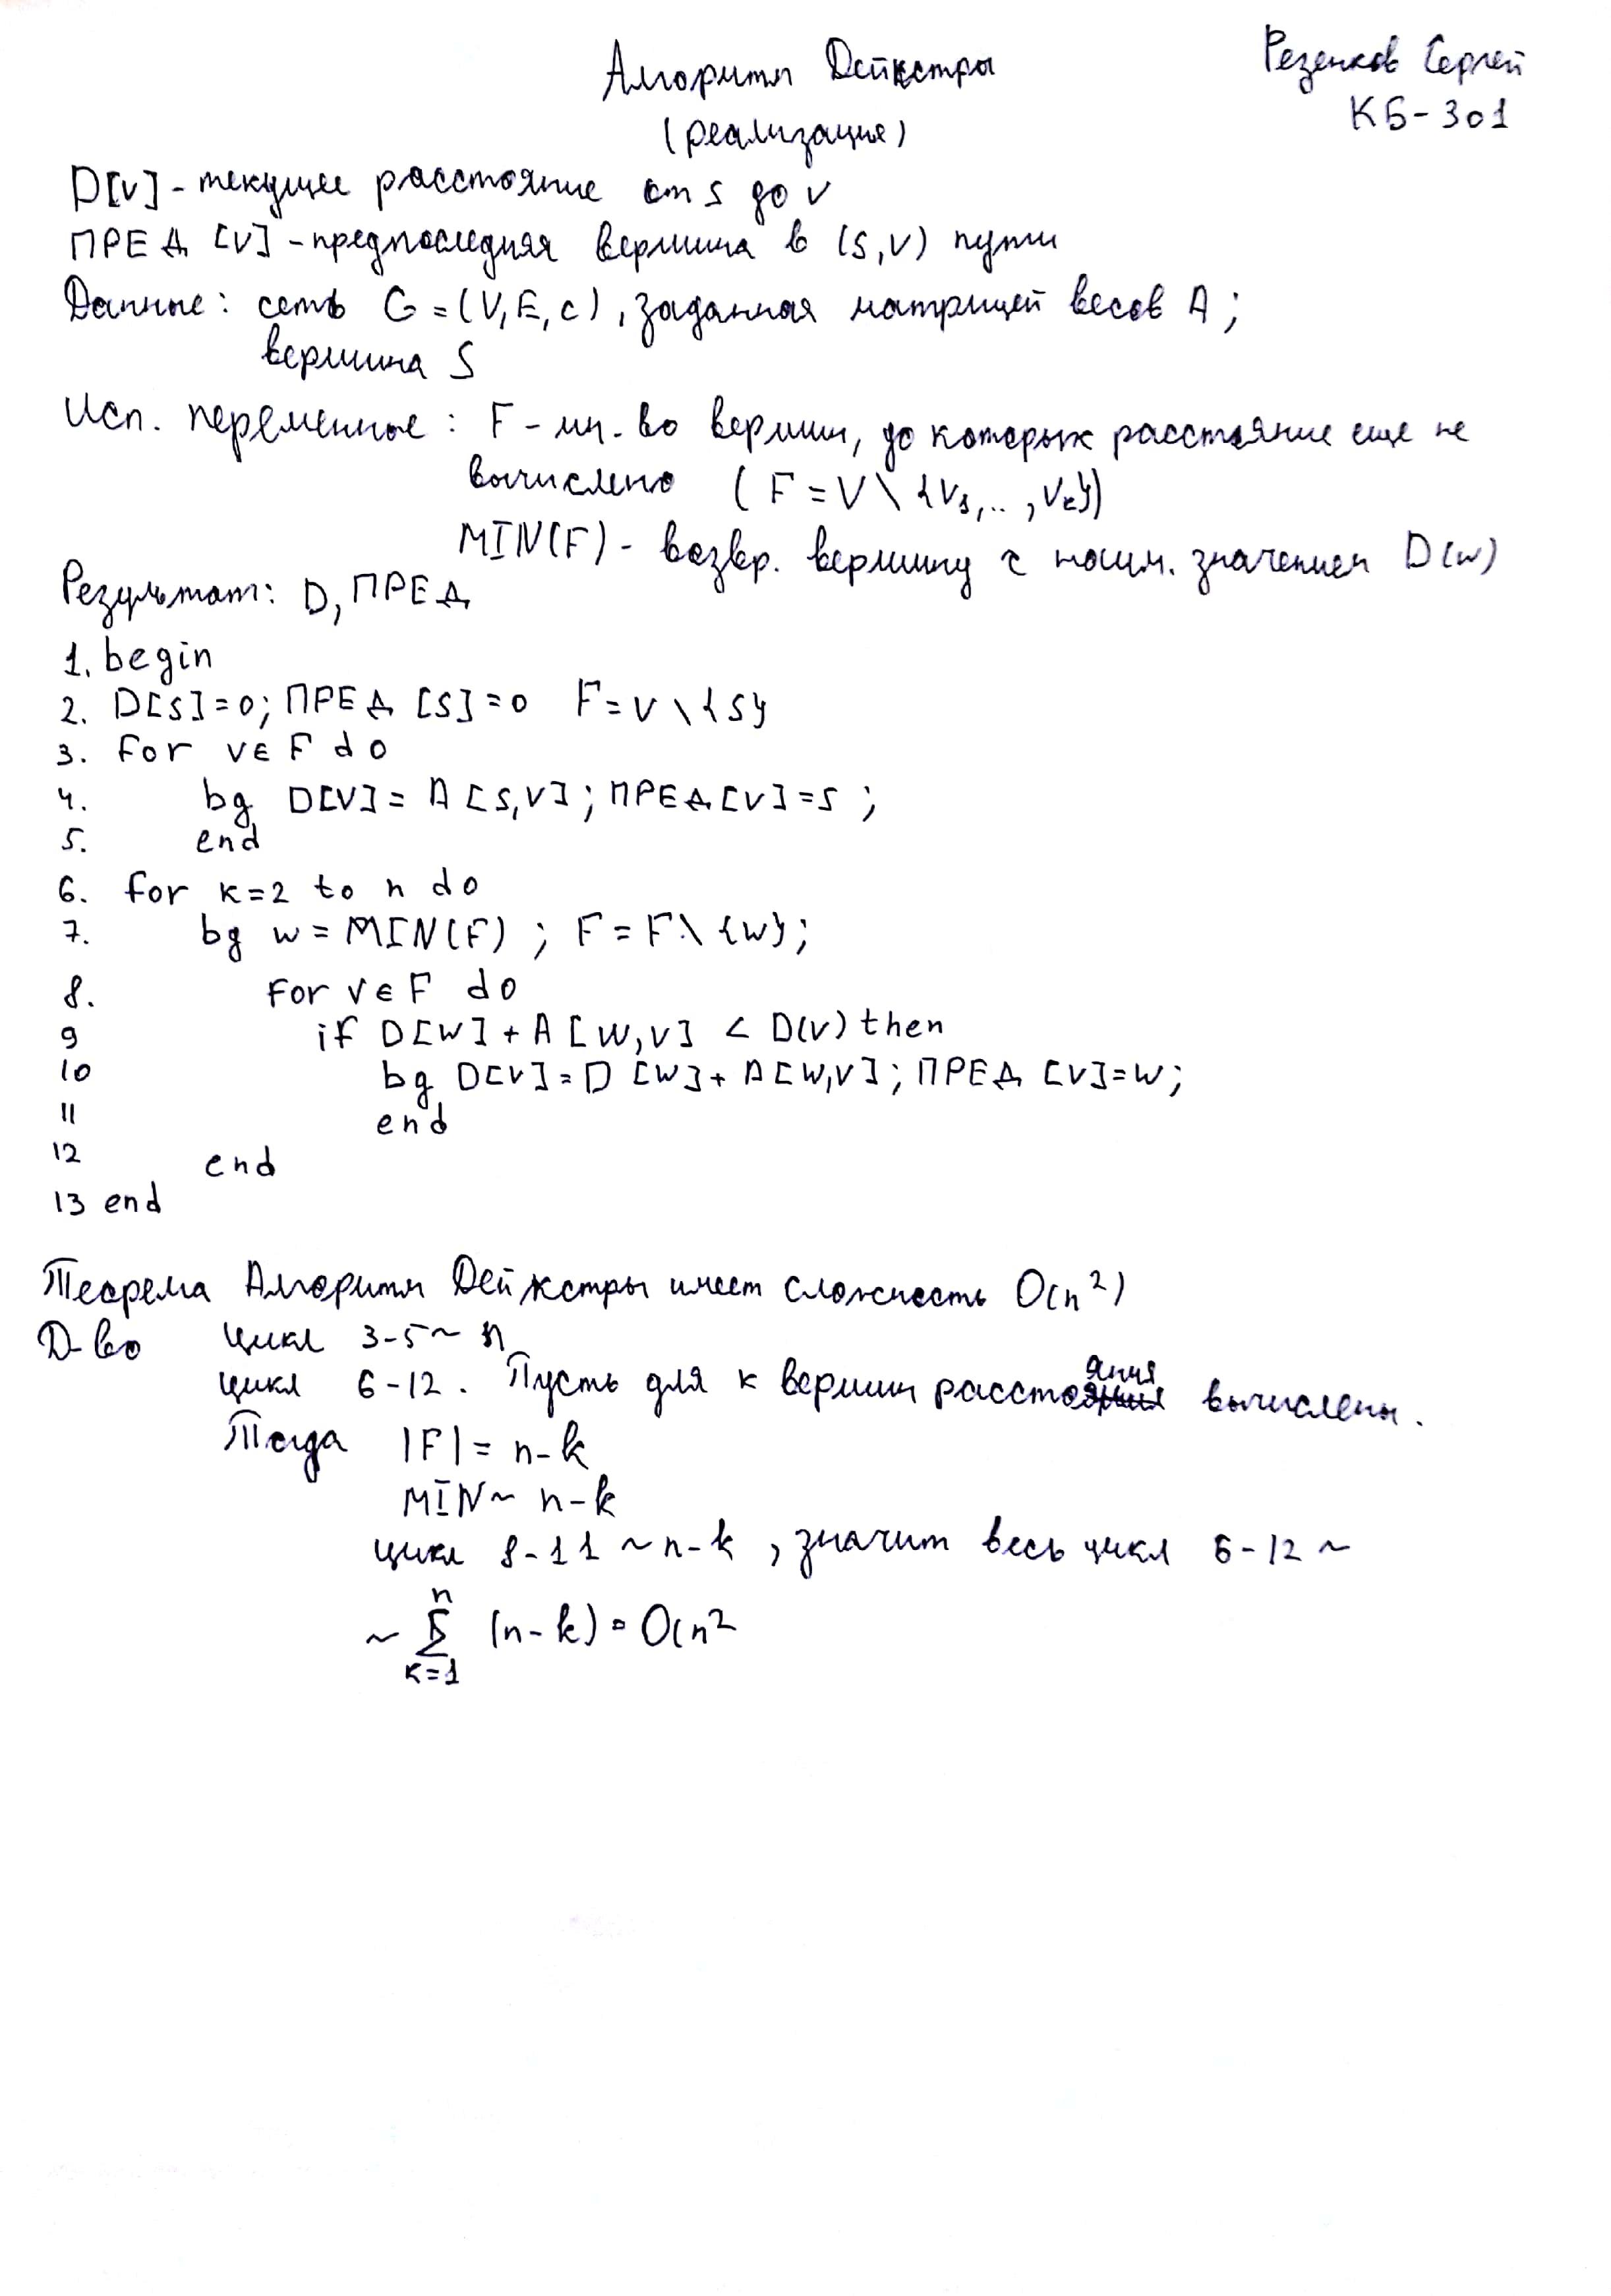 Алгоритм Дейкстры
(реализация)
Резенков Сергей
КБ-301
D[v] - текущее расстояние от s до v
ПРЕД [v] - предпоследняя вершина в (s,v) пути
Данные: сеть G = (V, E, c), заданная матрицей весов A;
вершина S
Исп. переменные: F - мн. во вершин, до которых расстояние еще не
вычислено (F = V \ {v₁, .., vₖ})
MIN(F) - возвр. вершину с наим. значением D(w)
Результат: D, ПРЕД
1. begin
2. D[s]=0; ПРЕД [s]=0 F=V \ {s}
3. for v∈F do
4. bg D[v]= A [s,v]; ПРЕД[v]=s ;
5. end
6. for k=2 to n do
7. bg w = MIN(F) ; F = F \ {w};
8. for v∈F do
9 if D[w] + A [w,v] < D(v) then
10 bg D[v]=D [w]+ A[w,v]; ПРЕД [v]=w;
11 end
12 end
13 end
Теорема Алгоритм Дейкстры имеет сложность O(n²)
Д-во цикл 3-5 ~ n
цикл 6-12. Пусть для k вершин расстояния вычислены.
Тогда |F| = n-k
MIN ~ n-k
цикл 8-11 ~ n-k, значит весь цикл 6-12 ~
~ ∑ₖ₌₁ⁿ (n-k) = O(n²